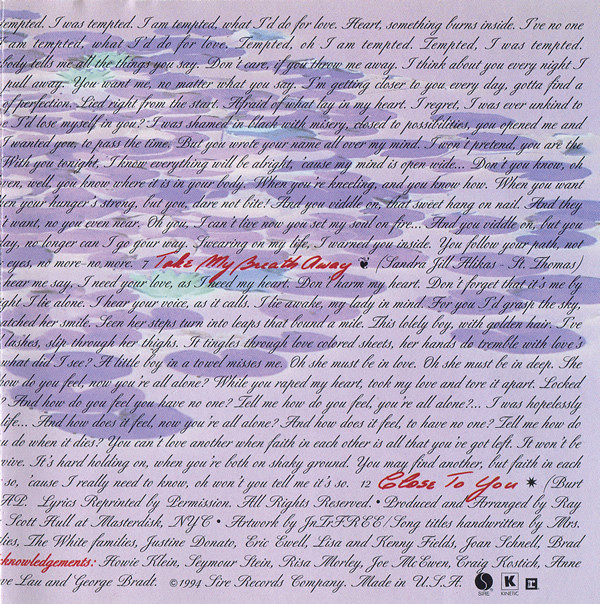 tempted. I was tempted. I am tempted, what I'd do for love. Heart, something burns inside. I've no one
am tempted, what I'd do for love. Tempted, oh I am tempted. Tempted, I was tempted.
body tells me all the things you say. Don't care, if you throw me away. I think about you every night I
pull away. You want me, no matter what you say. I'm getting closer to you every day, gotta find a
of perfection. Lied right from the start. Afraid of what lay in my heart. I regret, I was ever unkind to
I'd lose myself in you? I was shamed in black with misery, closed to possibilities, you opened me and
I wanted you, to pass the time. But you wrote your name all over my mind. I won't pretend, you are the
With you tonight, I know everything will be alright, 'cause my mind is open wide... Don't you know, oh
ven, well, you know where it is in your body. When you're kneeling, and you know how. When you want
en your hunger's strong, but you, dare not bite! And you viddle on, that sweet hang on nail. And they
't want, no you even near. Oh you, I can't live now you set my soul on fire... And you viddle on, but you
ay, no longer can I go your way. Swearing on my life, I warned you inside. You follow your path, not
eyes, no more-no more. 7 Take My Breath Away (Sandra Jill Alikas - St. Thomas)
hear me say, I need your love, as I need my heart. Don't harm my heart. Don't forget that it's me by
ight I lie alone. I hear your voice, as it calls. I lie awake, my lady in mind. For you I'd grasp the sky,
atched her smile. Seen her steps turn into leaps that bound a mile. This lolely boy, with golden hair. I've
lashes, slip through her thighs. It tingles through love colored sheets, her hands do tremble with love's
what did I see? A little boy in a towel misses me. Oh she must be in love. Oh she must be in deep. She
how do you feel, now you're all alone? While you raped my heart, took my love and tore it apart. Locked
? And how do you feel you have no one? Tell me how do you feel, you're all alone?... I was hopelessly
life... And how does it feel, now you're all alone? And how does it feel, to have no one? Tell me how do
u do when it dies? You can't love another when faith in each other is all that you've got left. It won't be
vive. It's hard holding on, when you're both on shaky ground. You may find another, but faith in each
so, 'cause I really need to know, or won't you tell me it's so. 12 Close To You ✷ (Burt
AP. Lyrics Reprinted by Permission. All Rights Reserved. • Produced and Arranged by Ray
Scott Hull at Masterdisk, NYC • Artwork by JnTrFREE/Song titles handwritten by Mrs.
lies, The White families, Justine Donato, Eric Ewell, Lisa and Kenny Fields, Joan Schnell, Brad
cknowledgements: Howie Klein, Seymour Stein, Risa Morley, Joe McEwen, Craig Kostich, Anne
ve Lau and George Bradt. ©1994 Sire Records Company. Made in U.S.A. SIRE K KINETIC R